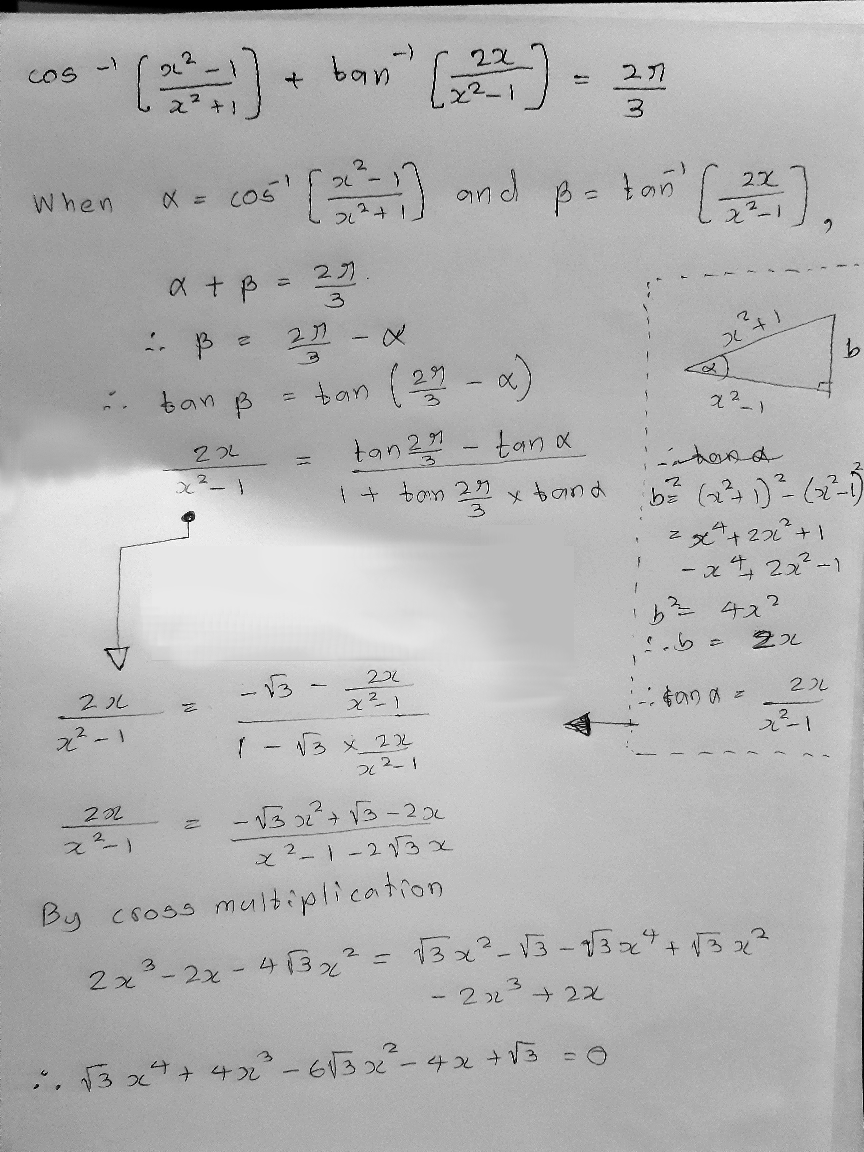 cos⁻¹ [(x² - 1)/(x² + 1)] + tan⁻¹ [2x/(x² - 1)] = 2π/3
When α = cos⁻¹ [(x² - 1)/(x² + 1)] and β = tan⁻¹ [2x/(x² - 1)],
α + β = 2π/3
∴ β = 2π/3 - α
∴ tan β = tan (2π/3 - α)
2x/(x² - 1) = (tan 2π/3 - tan α)/(1 + tan 2π/3 × tan α)
x² + 1
α
b
x² - 1
∴ tan α
b² = (x² + 1)² - (x² - 1)²
= x⁴ + 2x² + 1
- x⁴ + 2x² - 1
b² = 4x²
∴ b = 2x
∴ tan α = 2x/(x² - 1)
2x/(x² - 1) = (-√3 - 2x/(x² - 1))/(1 - √3 × 2x/(x² - 1))
2x/(x² - 1) = (-√3 x² + √3 - 2x)/(x² - 1 - 2√3 x)
By cross multiplication
2x³ - 2x - 4√3 x² = √3 x² - √3 - √3 x⁴ + √3 x²
- 2x³ + 2x
∴ √3 x⁴ + 4x³ - 6√3 x² - 4x + √3 = 0